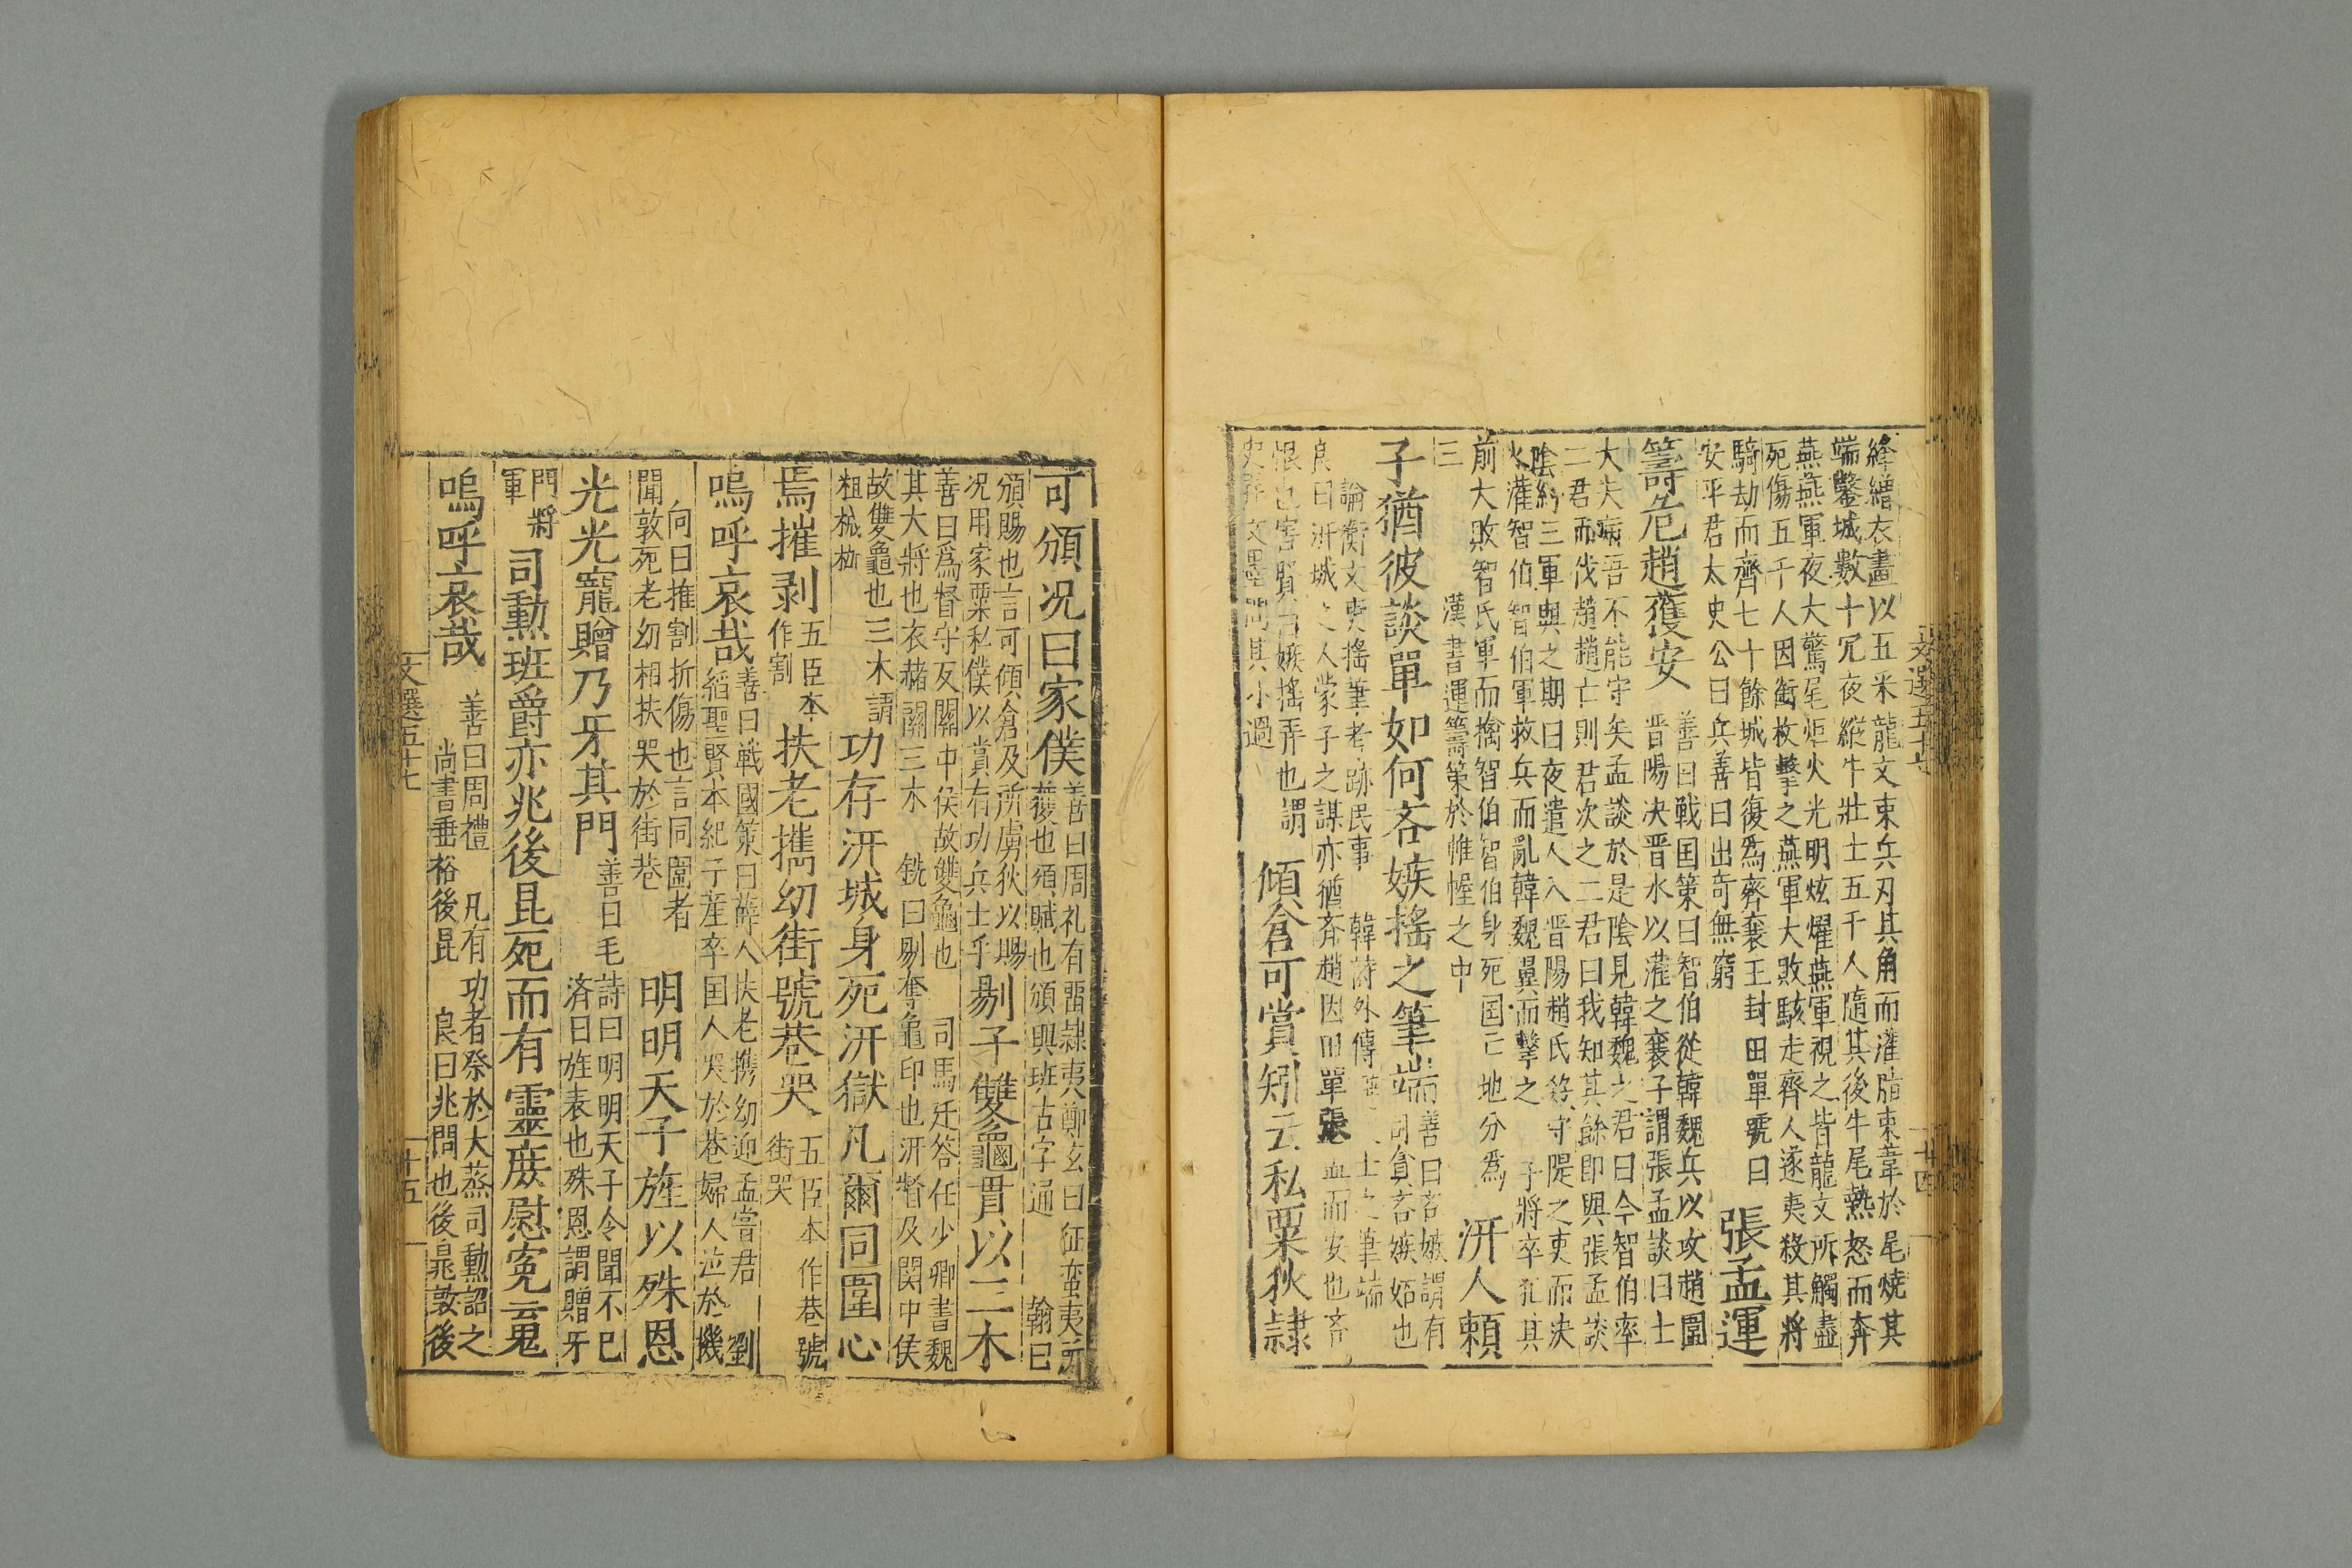 絳繒衣畫以五采龍文束兵刃其角而灌脂束葦於尾燒其
端鑿城數十冗夜縱牛壯士五千人隨其後牛尾熱怒而奔
燕燕軍夜大驚尾炬火光明炫燿燕軍視之皆龍文所觸盡
死傷五千人因銜枚擊之燕軍大敗駭走齊人遂夷殺其將
騎劫而齊七十餘城皆復爲齊襄王封田單號曰
安平君太史公曰兵善曰出奇無窮
張孟運
籌危趙獲安
善曰戰国策曰智伯從韓魏兵以攻趙圍
晋陽决晋水以灌之襄子謂張孟談曰士
大夫病吾不能守矣孟談於是陰見韓魏之君曰今智伯率
二君而伐趙趙亡則君次之二君曰我知其餘即與張孟談
陰約三軍與之期曰夜遣人入晋陽趙氏殺守隄之吏而决
水灌智伯智伯軍救兵而亂韓魏翼而擊之
子將卒犯其
前大敗智氏軍而擒智伯智伯身死国亡地分爲
三
漢書運籌策於帷幄之中
汧人頼
子猶彼談單如何吝嫉搖之筆端
善曰吝嫉謂有
司貪吝嫉妬也
論衡文吏搖筆考跡民事
韓詩外傳
士之筆端
良曰汧城之人蒙子之謀亦猶齊趙因田單張孟而安也吝
恨也害賢曰嫉搖弄也謂
文墨問其小過
傾倉可賞矧云私粟狄隷
可頒况曰家僕
善曰周礼有罪隷夷鄭玄曰征蛮夷所
獲也頒賦也頒與班古字通
翰曰
頒賜也言可傾倉及所虜狄以賜
况用家粟私僕以賞有功兵士乎
剔子雙龜貫以三木
善曰爲督守及關中侯故雙龜也
司馬廷答任少卿書魏
其大將也衣赭關三木
銑曰剔奪龜印也汧督及関中侯
故雙龜也三木謂
柤械枷
功存汧城身死汧獄凡爾同圍心
焉摧剥
五臣本
作割
扶老攜幼街號巷哭
五臣本作巷號
街哭
嗚呼哀哉
善曰戰國策曰薛人扶老攜幼迎孟嘗君
劉
縚聖賢本紀子産卒国人哭於巷婦人泣於機
向曰摧割折傷也言同圍者
聞敦死老幼相扶哭於街巷
明明天子旌以殊恩
光光寵贈乃牙其門
善曰毛詩曰明明天子令聞不已
済曰旌表也殊恩謂贈牙
門將
軍
司勲班爵亦兆後昆死而有靈庶慰寃䰟
嗚呼哀哉
善曰周禮
凡有功者祭於大蒸司勲詔之
尚書垂裕後昆
良曰兆問也後昆敦後
文選五十七
十五
文選五十七
十四